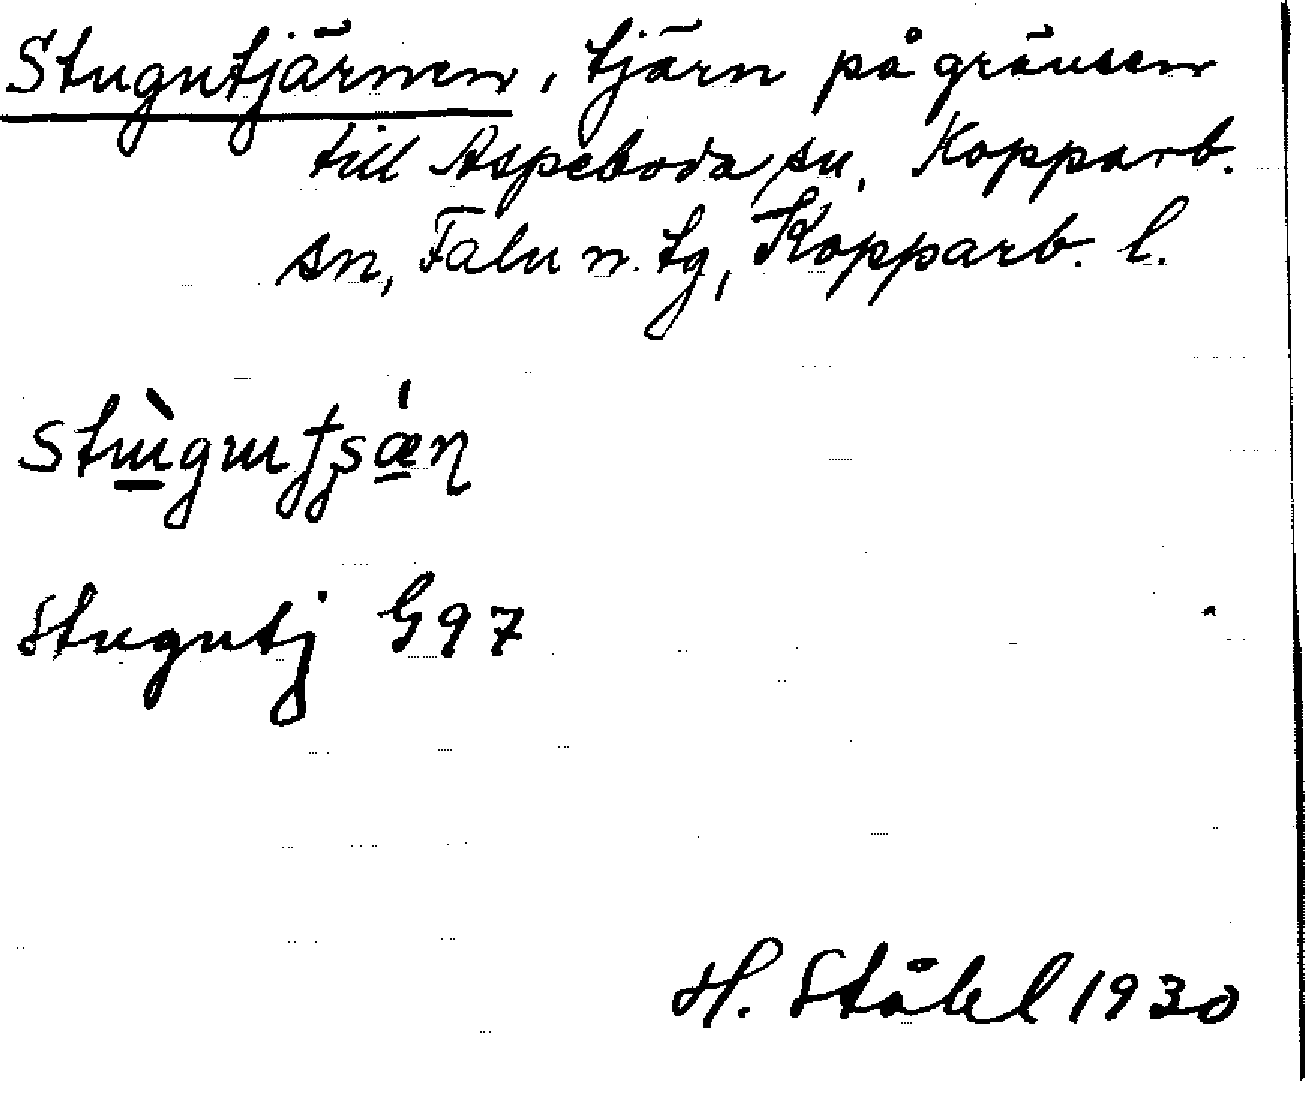 Stugutjärnen, tjärn på gränsen
till Aspeboda sn, Kopparb.
sn, Falu n. tg, Kopparb. l.
Stugutj G97
H. Ståhl 1930